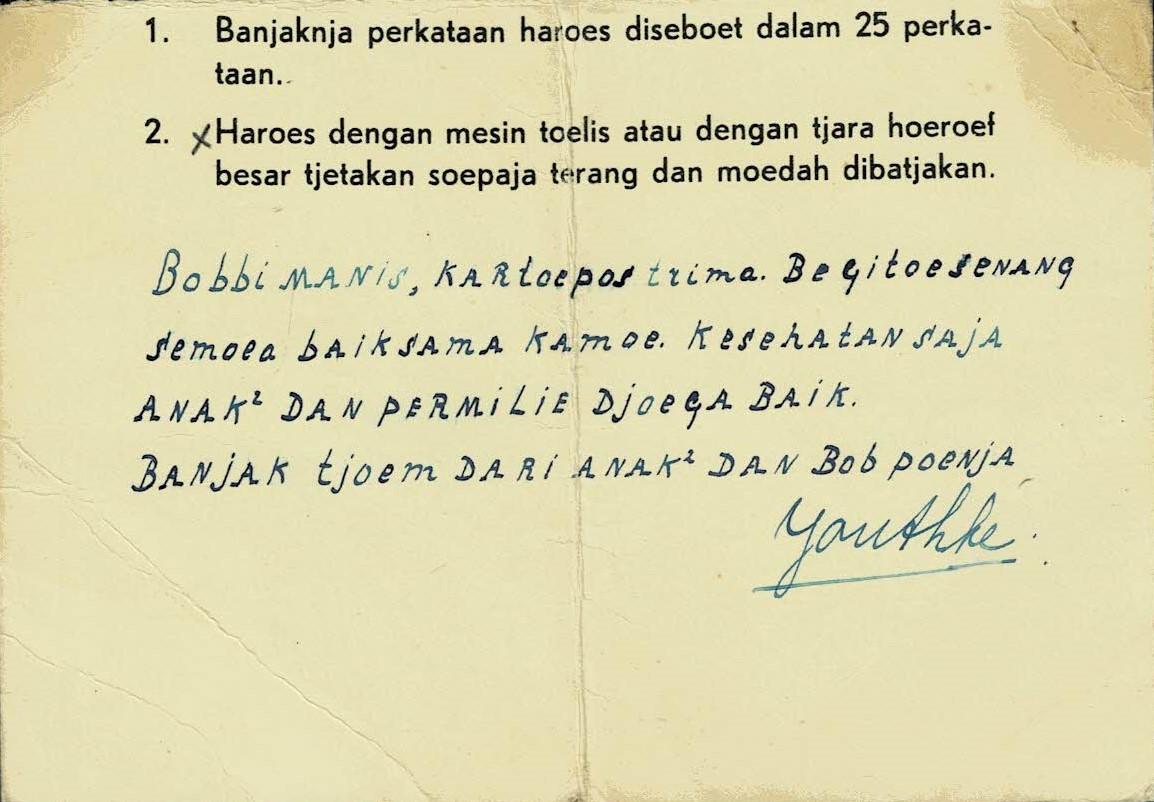 1. Banjaknja perkataan haroes diseboet dalam 25 perka-
taan.
2. xHaroes dengan mesin toelis atau dengan tjara hoeroef
besar tjetakan soepaja terang dan moedah dibatjakan.
Bobbi MANIS, KARtoepos trima. BegitoeSENANG
semoea baiksama kamoe. Kesehatan saja
ANAK² DAN PERMILIE Djoega BAIK.
BANJAK tjoem DARI ANAK² DAN Bob poenja
Youthke.